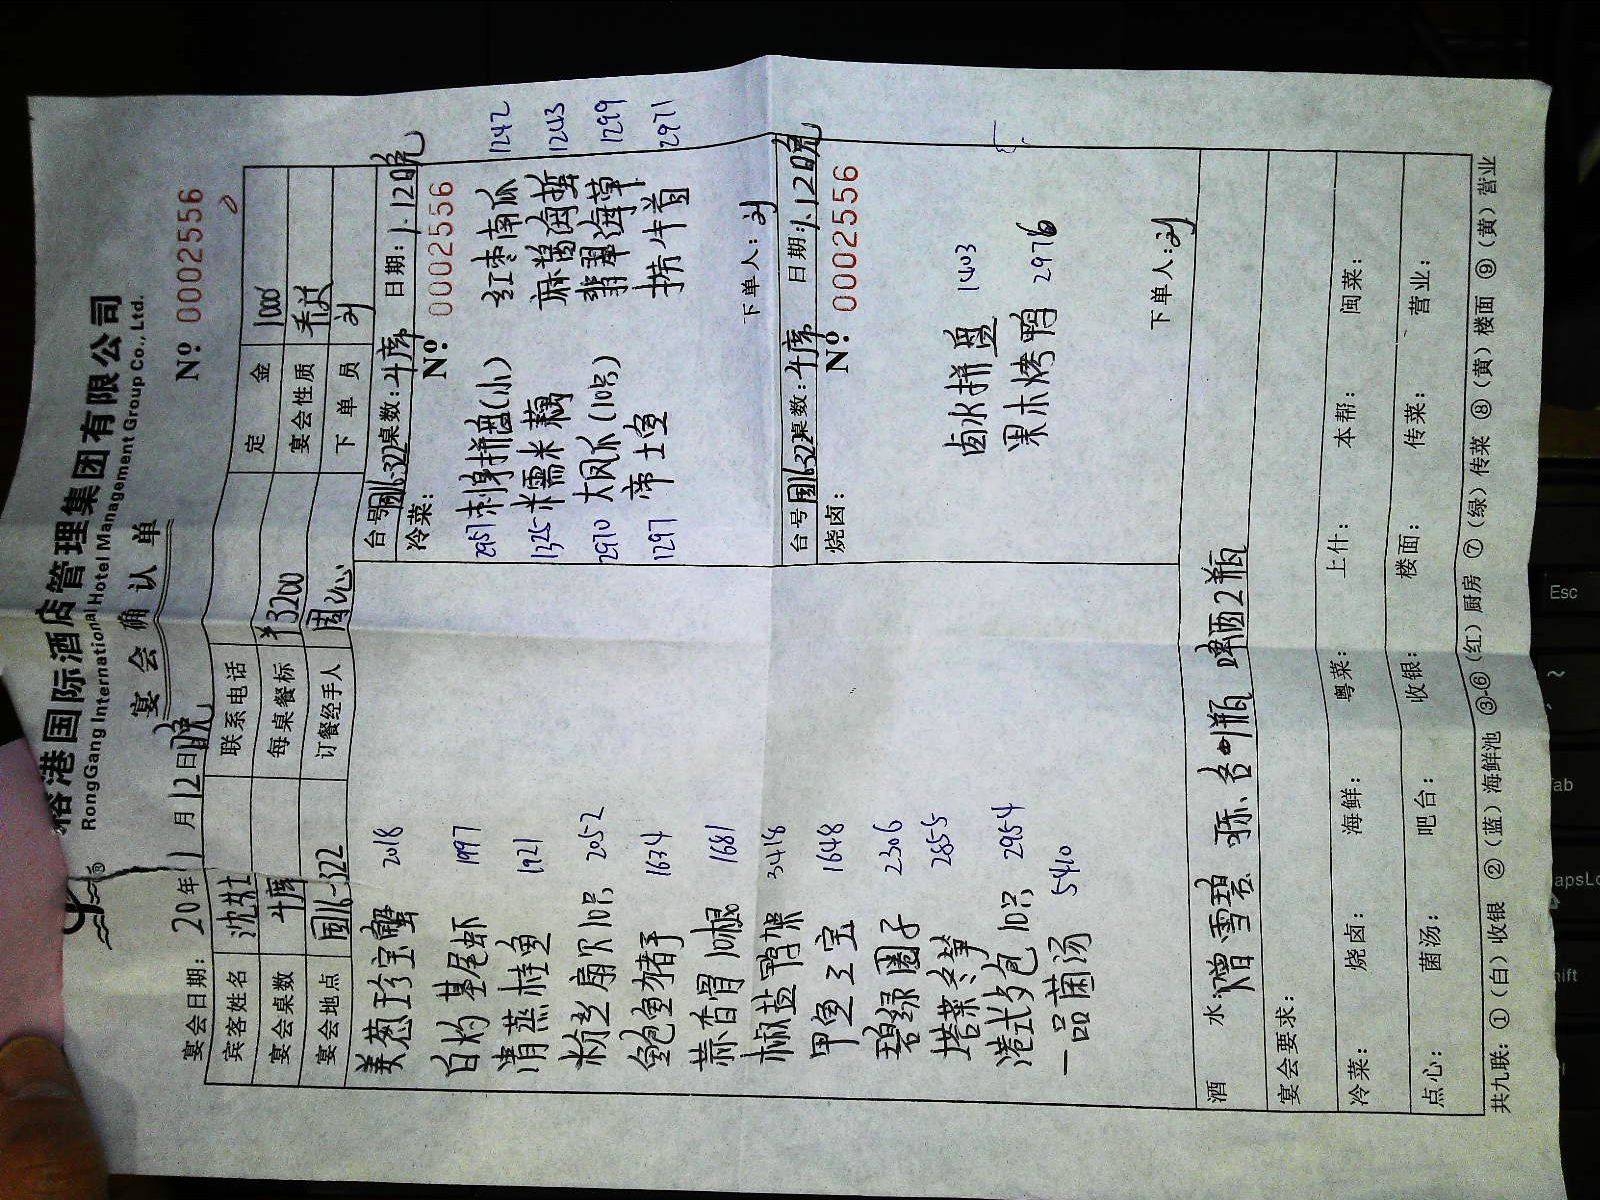 裕港国际酒店管理集团有限公司
RongGang International Hotel Management Group Co., Ltd.
宴会确认单
宴会日期: 20 年 1 月 12 日晚 Nº 0002556
宾客姓名 沈 联系电话 定金 1000
宴会桌数 4席 每桌餐标 ¥3200 宴会性质
宴会地点 322 订餐经手人 周沁 下单员 刘
姜葱珍宝蟹 2018
白灼基尾虾 1997
清蒸桂鱼 1921
粉丝扇贝10只 2052
鲍鱼猪手 1634
蒜香骨 1681
椒盐鸭架 3418
甲鱼三宝 1648
碧绿圈子 2306
塔菜冬笋 2855
港式夕包10只 2954
一品菌汤 5410
台号: 322 桌数: 4席 日期: 1.12晚
冷菜: Nº 0002556
2957 刺身拼盘(小) 红枣南瓜 1242
1325 糯米藕 麻酱海蜇 1243
2970 大凤爪(10只) 翡翠海草 1299
1297 帝王鱼 捞牛首 2971
下单人: 刘
台号 322 桌数: 4席 日期: 1.12晚
烧卤: Nº 0002556
卤水拼盘 1403
果木烤鸭 2976
下单人: 刘
酒水: 赠雪碧 各1瓶 啤酒2瓶
宴会要求:
冷菜: 烧卤: 海鲜: 粤菜: 上什: 本帮: 闽菜:
点心: 菌汤: 吧台: 收银: 楼面: 传菜: 营业:
共九联: ①(白)收银 ②(蓝)海鲜池 ③-⑥(红)厨房 ⑦(绿)传菜 ⑧(黄)楼面 ⑨(黄)营业
Esc
~
ab
apsLo
hift